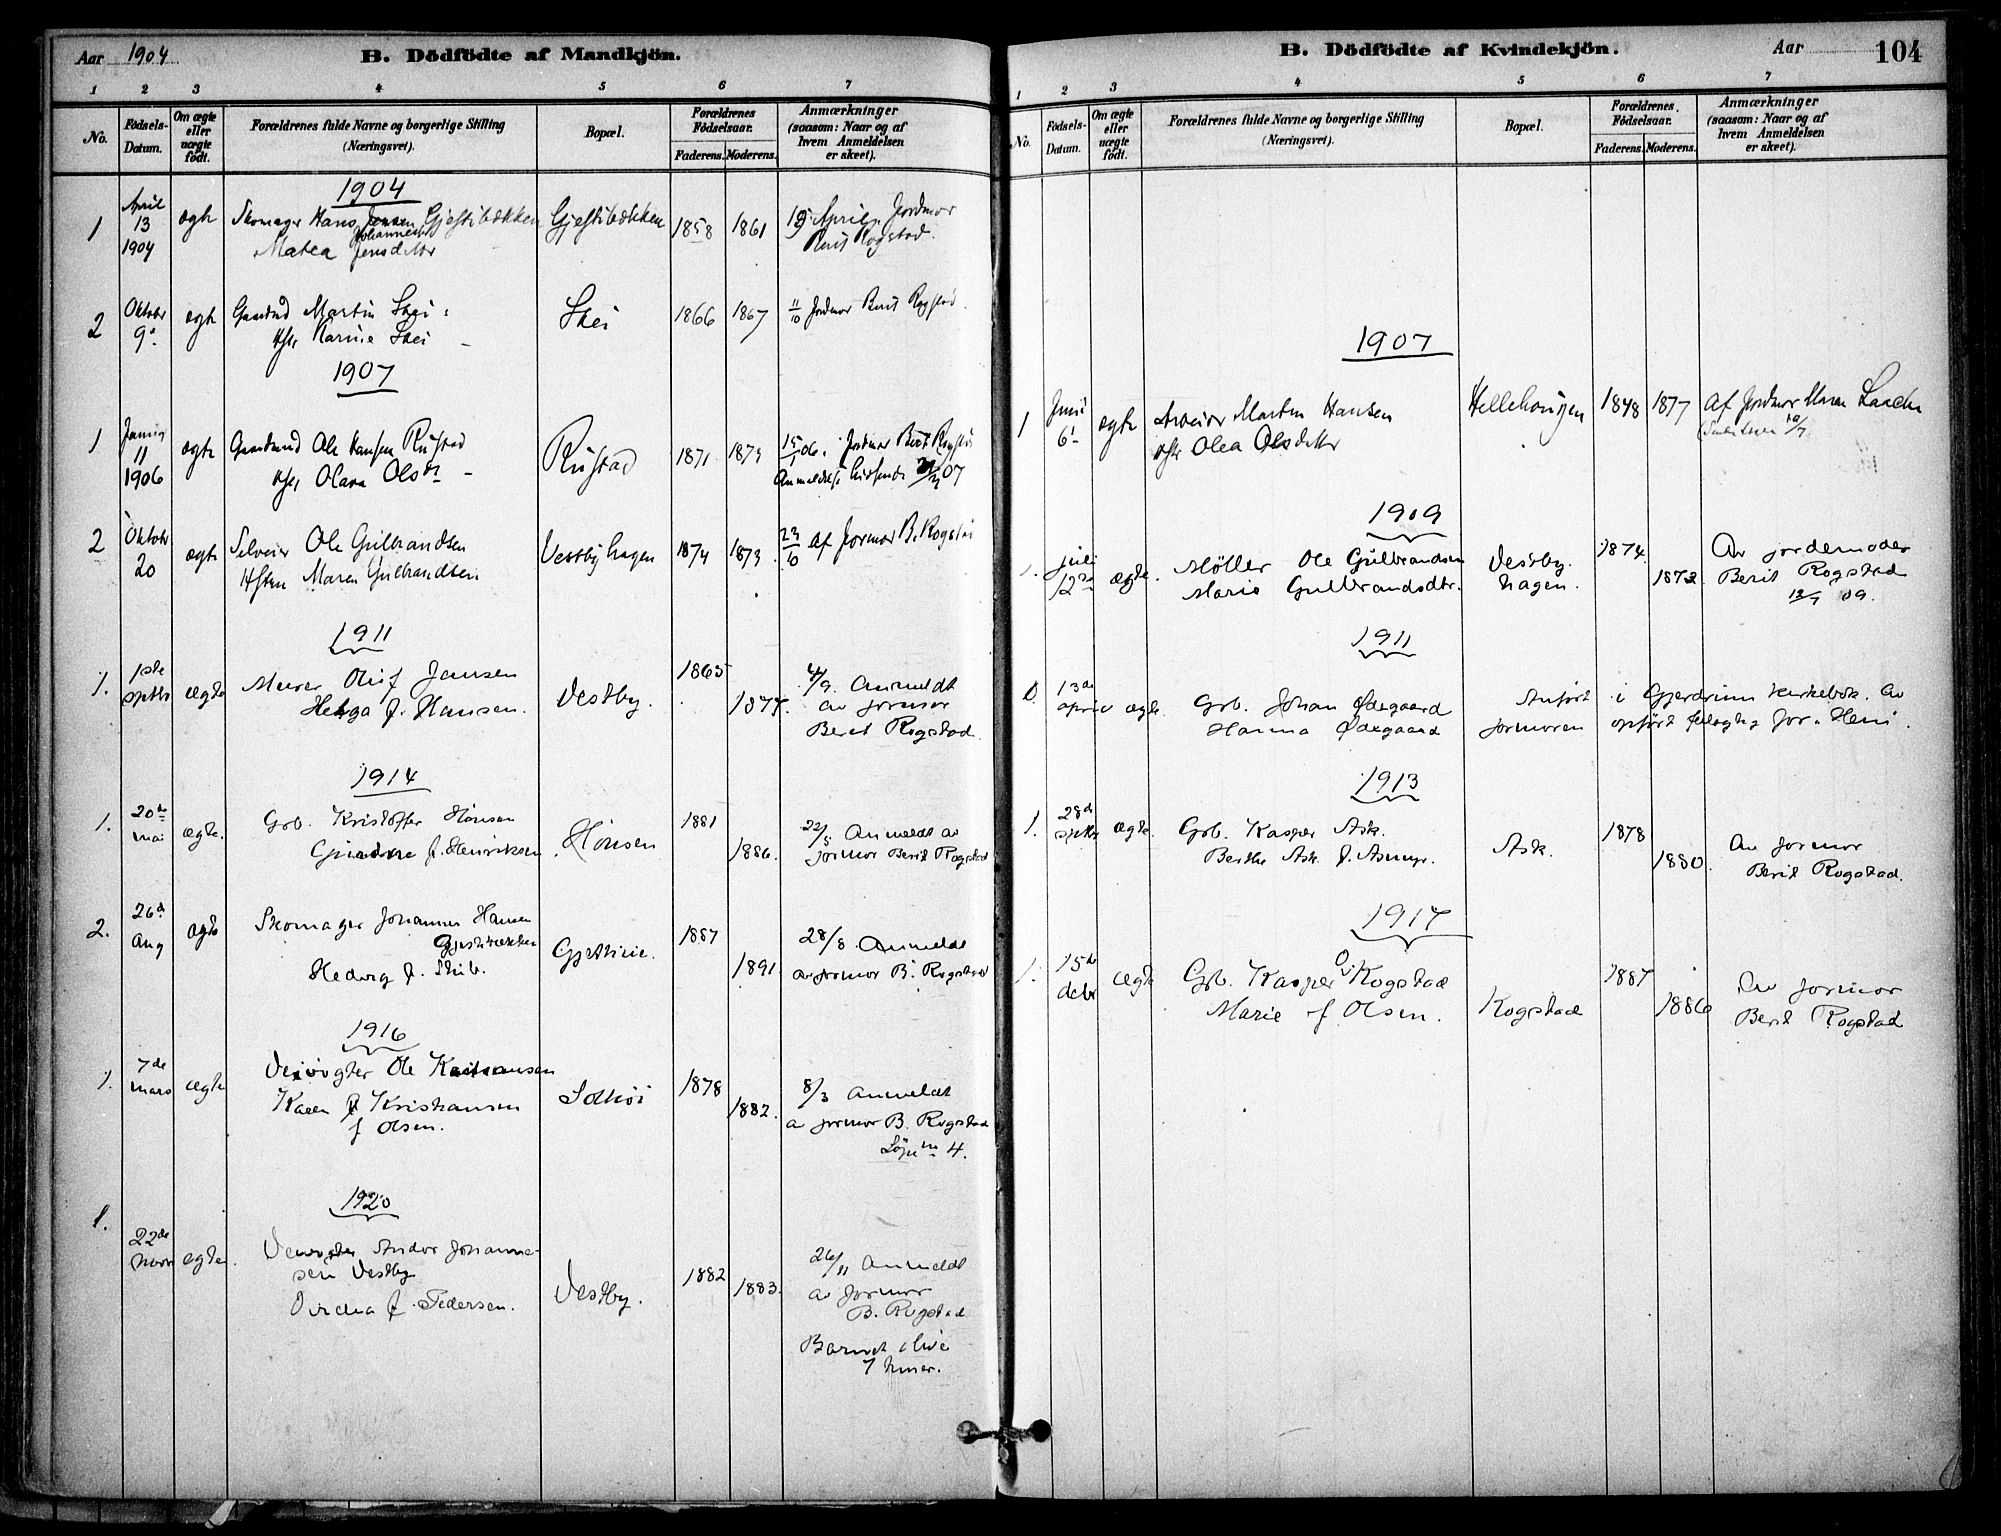 Aar 1904
B. Dödfödte af Mandkjön.
1 2 3 4 5 6 7
No.
Födsels-Datum.
Om ægte eller uægte födt.
Forældrenes fulde Navne og borgerlige Stilling (Næringsvei).
Bopæl.
Forældrenes Födselsaar.
Faderens. Moderens.
Anmærkninger (saasom: Naar og af hvem Anmeldelsen er skeet).
1904
1 April 13 1904 ægte Skomager Hans Jensen Gjestibækken Gjestibækken 1858 1861 April Jordmor
Johannes
Matea Jensdtter Berit Rogstad.
2 Oktobr 9 ægte Gaardmd Martin Skei Skei 1866 1867 11/10 Jordmor Berit Rogstad
Hstr Karine Skei
1907
1 Januar 11 1906 ægte Gaardmd Ole Hansen Rustad Rustad 1871 1874 15/1 06. Jordmor Berit Rogstad
Hstr Olava Olsdtr 07
2 Oktobr 20 ægte Selveier Ole Gulbrandsen Vestbyhagen 1874 1873 23/10 af Jormor B. Rogstad
Hstru Maren Gulbrandsen
1911
1. 1ste septbr ægte Murer Oluf Jansen Vestby. 1865 1877. 4/9. Anmeldt
Helga f. Hansen. av jormor
Berit Rogstad.
1914
1. 20de mai ægte. Grb. Kristoffer Hönsen Hönsen 1881 1886. 22/5 Anmeldt av
f. Henriksen jormor Berit Rogstad
2. 26de aug ægte Skomager Johannes Hansen
Gjestibækken 1887 1891 28/8. Anmeldt
Hedvig f. Stub. av jormor B. Rogstad
1916
1. 7de mars ægte Veivogter Ole Kristiansen 1878 1882. 8/3 Anmeldt
Karen Kristiansen a jormor B. Rogstad
f Olsen. 4.
1920
1. 22de novr ægte. Veivogter Andor Johanne-
sen Vestby Vestby. 1882 1883. 26/11 Anmeldt
f. Pedersen. av jormor
B. Rogstad
Barnet
7 timer.
B. Dödfödte af Kvindekjön.
Aar
104
1 2 3 4 5 6 7
No.
Födsels-Datum.
Om ægte eller uægte födt.
Forældrenes fulde Navne og borgerlige Stilling (Næringsvei).
Bopæl.
Forældrenes Födselsaar.
Faderens. Moderens.
Anmærkninger (saasom: Naar og af hvem Anmeldelsen er skeet).
1907
1 Juni 6 ægte Arbeider Martin Hansen Hellehaugen 1848 1877 af Jordmor Maren
Hstr Olea Olsdtter
1909
1. juli 12te ægte. Möller Ole Gulbrandsen Vestby- 1874. Av jordemoder
Marie Gulbrandsdtr. hagen. 1873. Berit Rogstad
12/7 09.
1911
0 13de april ægte. Grb. Johan Ødegaard Anfört i Gjerdrum kirkebok. Av
Hanna Ødegaard jormoren opfört
1913
1. 28de septbr ægte. Grb. Kasper Ask. Ask. 1878 1880. Av jormor
Berthe Ask f. Asmyr. Berit Rogstad.
1917
1. 15de decbr ægte Grb. Kasper O. Rogstad Rogstad 1887 1886 Av jormor
Marie f Olsen. Berit Rogstad